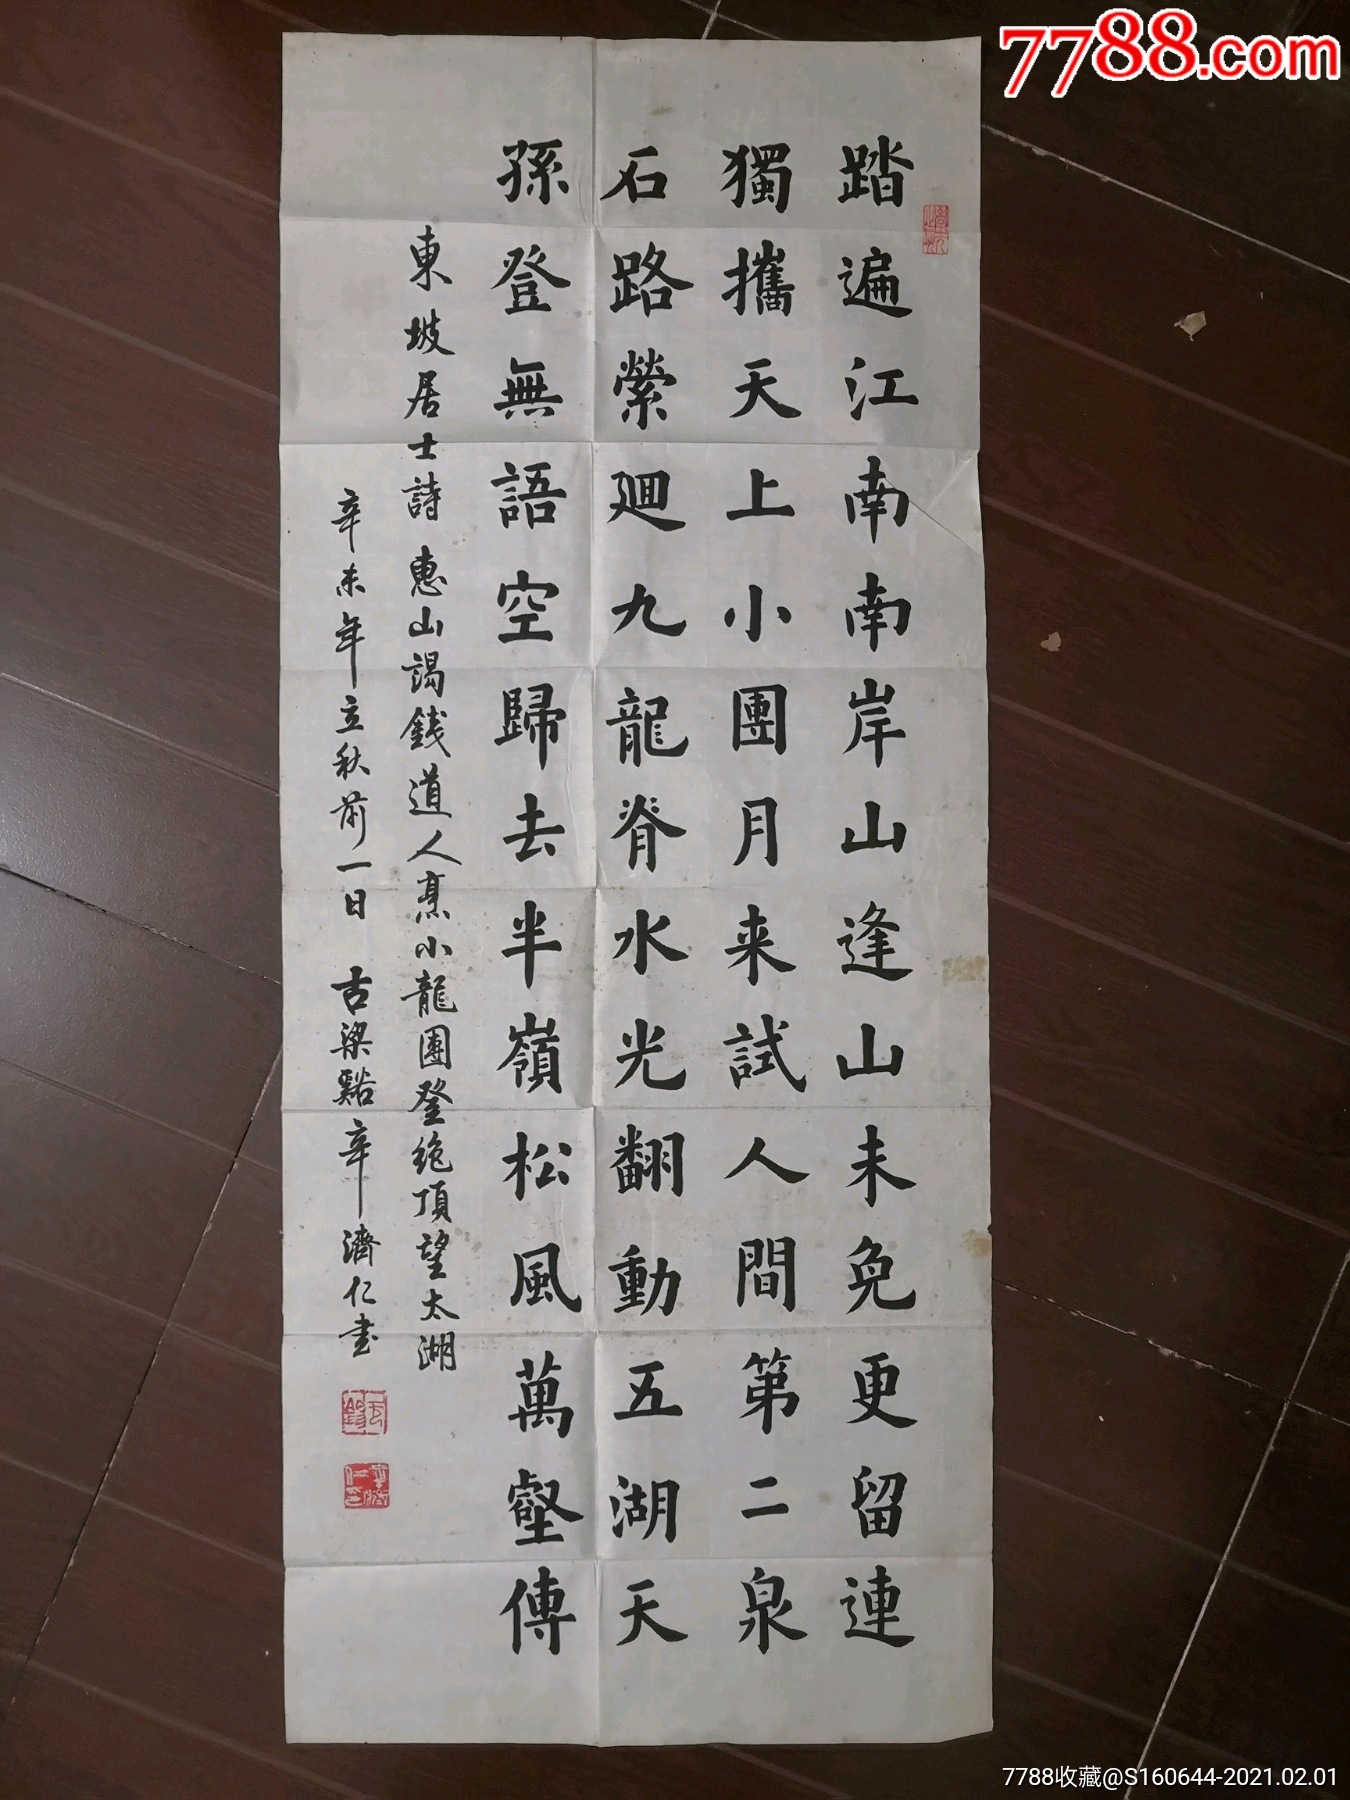 7788.com
踏遍江南南岸山逢山未免更留連
獨攜天上小團月来試人間第二泉
石路縈迴九龍脊水光翻動五湖天
孫登無語空歸去半嶺松風萬壑傳
東坡居士詩 惠山謁錢道人烹小龍團登絶頂望太湖
辛未年立秋前一日 古梁谿辛濟仁書
7788收藏@S160644-2021.02.01